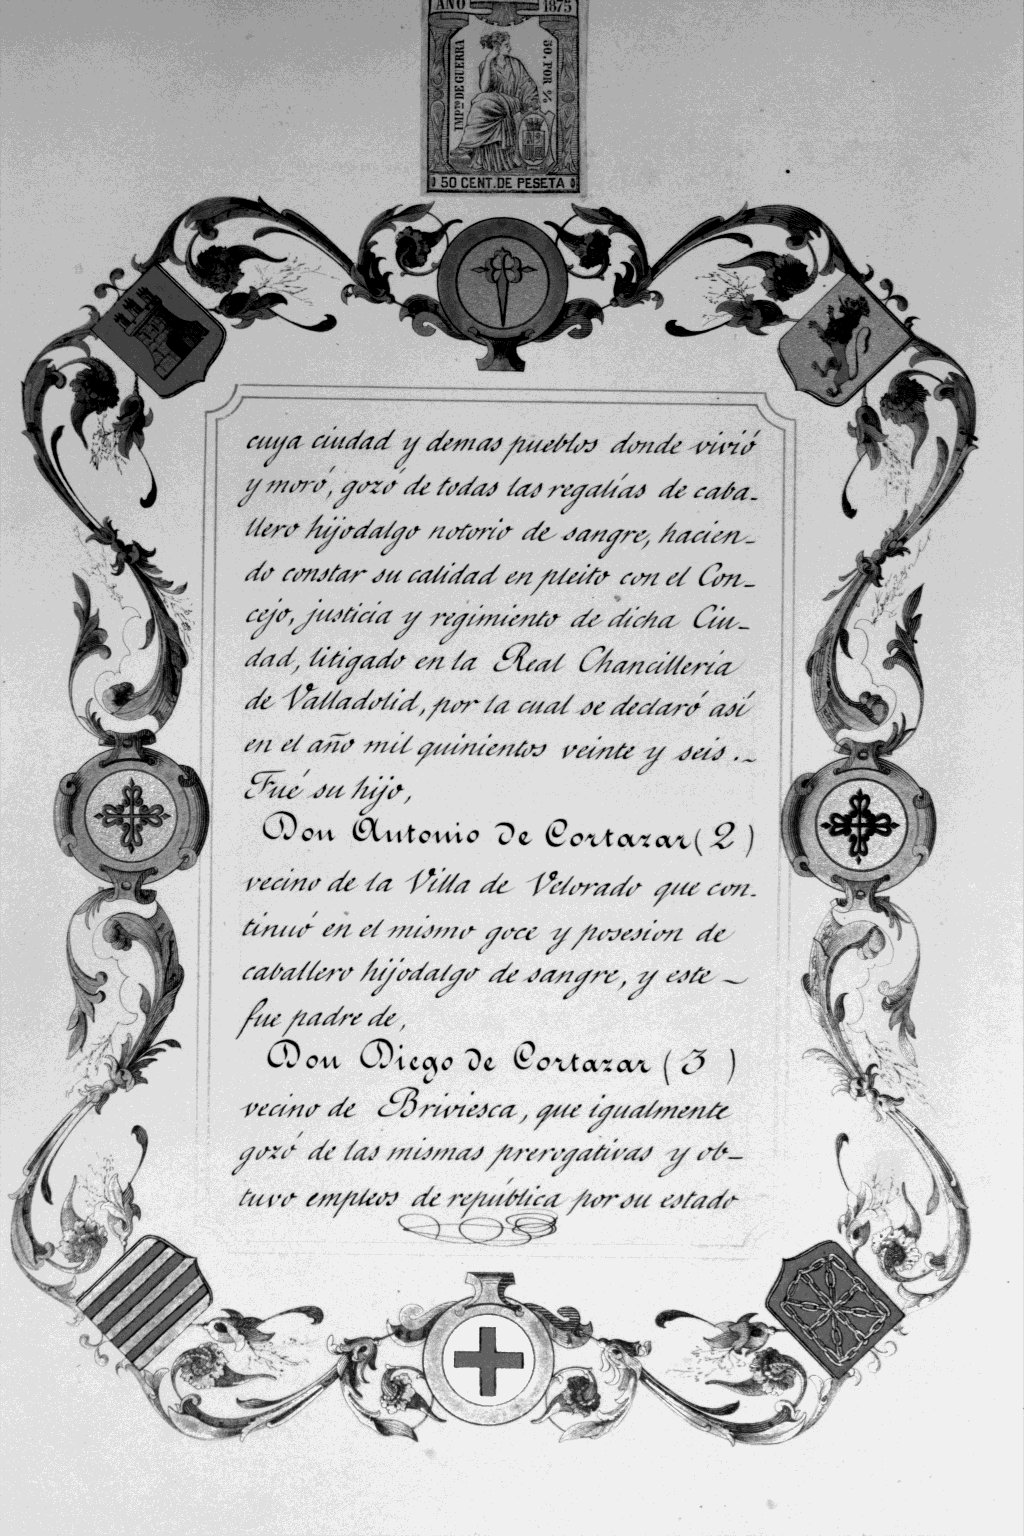 AÑO 1875
IMP.TO DE GUERRA
50. POR %
50 CENT. DE PESETA
cuya ciudad y demas pueblos donde vivió
y moró, gozó de todas las regalías de caba-
llero hijodalgo notorio de sangre, hacien-
do constar su calidad en pleito con el Con-
cejo, justicia y regimiento de dicha Ciu-
dad, litigado en la Real Chancillería
de Valladolid, por la cual se declaró así
en el año mil quinientos veinte y seis.-
Fué su hijo,
Don Antonio de Cortazar (2)
vecino de la Villa de Velorado que con-
tinuó en el mismo goce y posesion de
caballero hijodalgo de sangre, y este -
fue padre de,
Don Diego de Cortazar (3)
vecino de Briviesca, que igualmente
gozó de las mismas prerogativas y ob-
tuvo empleos de república por su estado